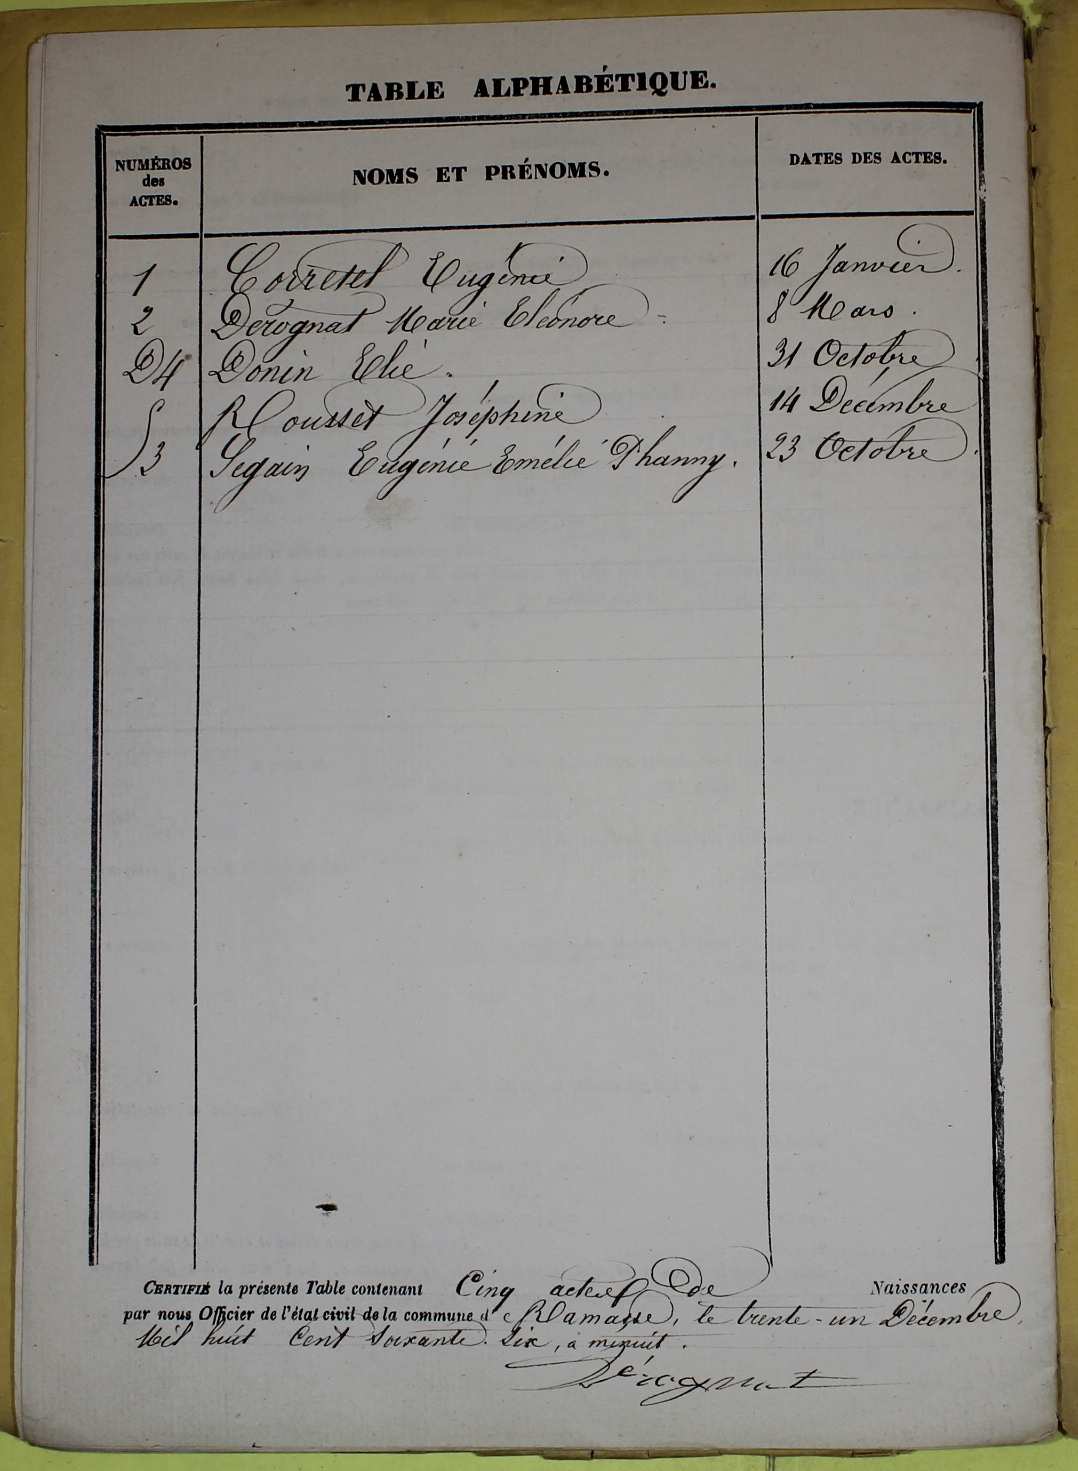 TABLE ALPHABÉTIQUE.
NUMÉROS des ACTES. NOMS ET PRÉNOMS. DATES DES ACTES.
1 Corretel Eugénie 16 Janvier.
2 Dérognat Marie Eléonore 8 Mars.
D4 Donin Elie. 31 Octobre
5 Rousset Joséphine 14 Décembre
3 Segain Eugénie Emélie Phanny. 23 Octobre.
CERTIFIÉ la présente Table contenant Cinq actes de Naissances
par nous Officier de l'état civil de la commune de Ramasse, le trente-un Décembre
Mil huit Cent Soixante Six, à minuit.
Dérognat